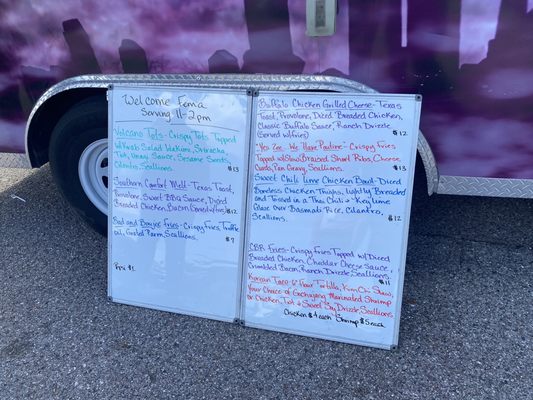 Welcome Fema
Serving 11-2pm
Volcano Tots- Crispy Tots Topped
w/ Krab Salad, Wakimi, Sriracha,
Yum Sauce, Sesame Seeds,
Cilantro, Scallions. $13
Southern Comfort Melt- Texas Toast,
Provolone, Sweet BBQ Sauce, Diced
Breaded Chicken, Bacon (Served w/fries) $12
Bad and Boujee fries- Crispy fries, Truffle
oil, Grated Parm, Scallions.
$7
Pop $1
Buffalo Chicken Grilled Cheese- Texas
Toast, Provolone, Diced Breaded Chicken,
Classic Buffalo Sauce, Ranch Drizzle
(Served w/fries) $12
"Yes Zee... We Have Poutine"- Crispy Fries
Topped w/Slow Braised Short Ribs, Cheese
Curds, Pan Gravy, Scallions. $13
Sweet Chili Lime Chicken Bowl- Diced
Boneless Chicken Thighs, Lightly Breaded
and Tossed in a Thai Chili + Key Lime
Glaze over Basmati Rice, Cilantro,
Scallions. $12
CBR Fries- Crispy Fries Topped w/Diced
Breaded Chicken, Cheddar Cheese Sauce,
Crumbled Bacon, Ranch Drizzle, Scallions.
$11
Korean Taco- 6" Flour Tortilla, Kim Chi Slaw,
Your Choice of Gochujang Marinated Shrimp
or Chicken, Sweet Soy Drizzle, Scallions
Chicken $4 each Shrimp $5 each